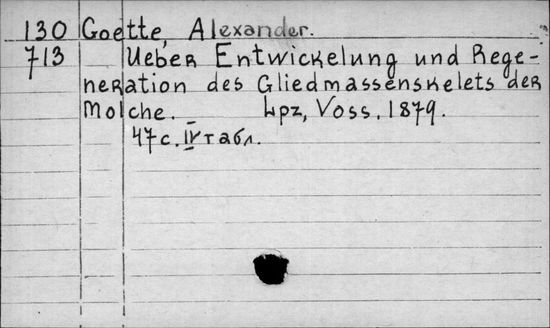 130 Goette, Alexander.
713 Ueber Entwickelung und Rege-
neration des Gliedmassenskelets der
Molche. Lpz, Voss. 1879.
47 с. IV табл.